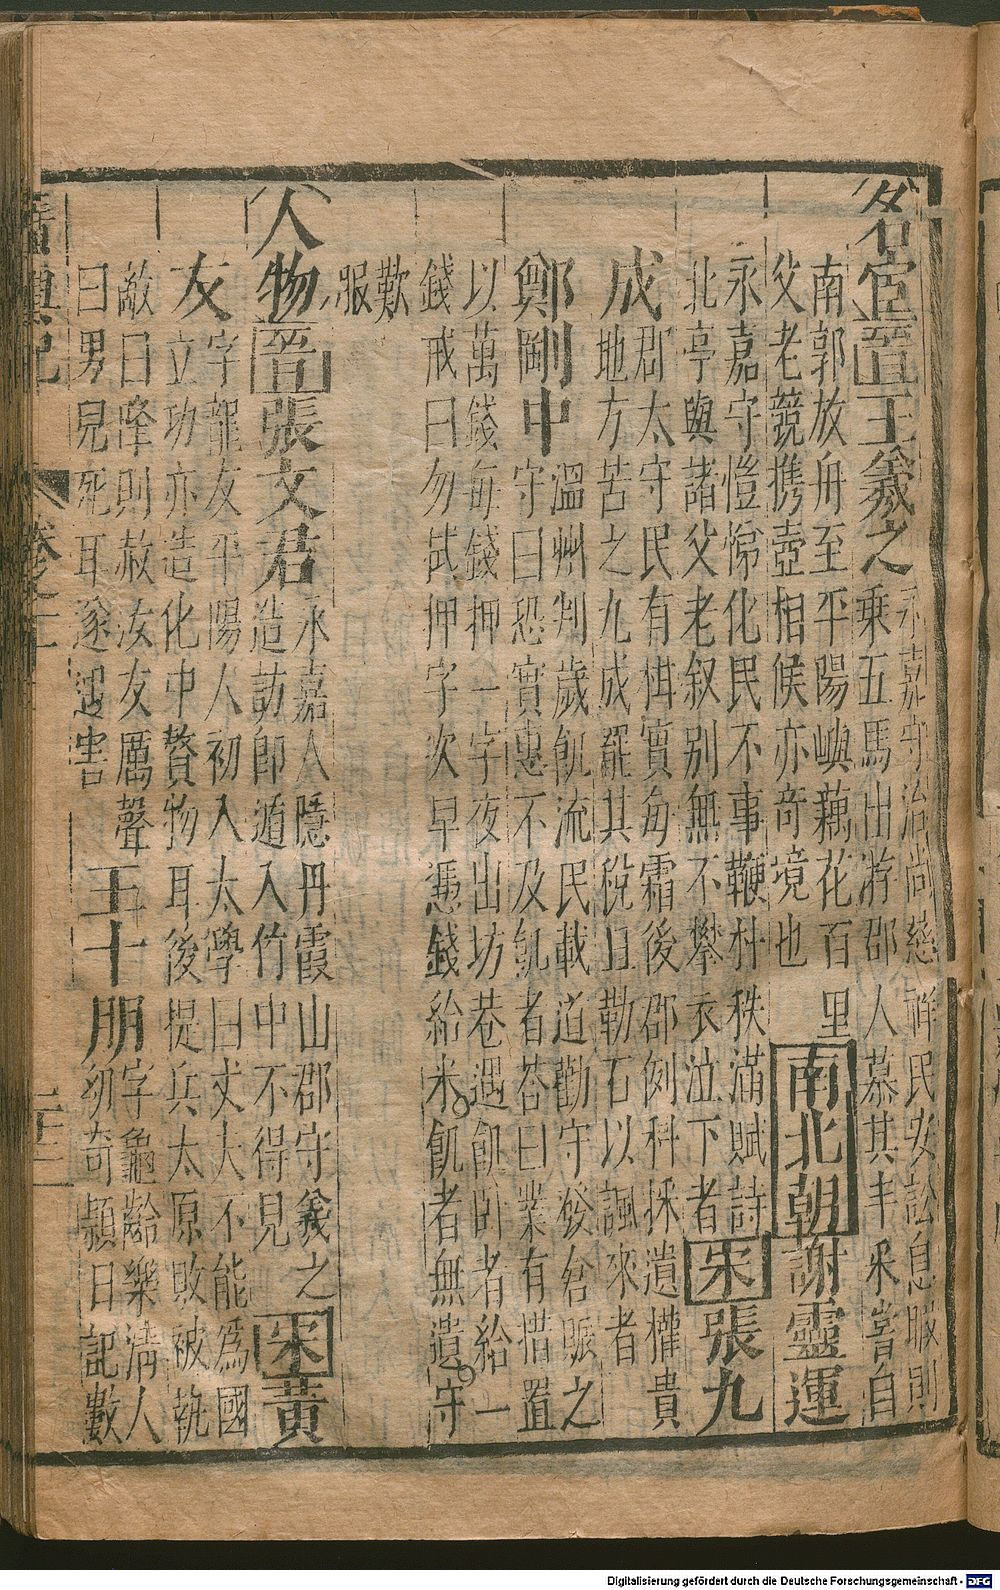 名宦晋王羲之
永嘉守治尚慈祥民安訟息暇則
乘五馬出游郡人慕其丰采嘗自
南郭放舟至平陽嶼藕花百里
父老競携壺相候亦奇境也
南北朝謝靈運
永嘉守愷悌化民不事鞭朴秩滿賦詩
北亭與諸父老叙別無不攀衣泣下者
宋張九
成
郡太守民有柑實每霜後郡例科採遺權貴
地方苦之九成罷其稅且勒石以諷來者
鄭剛中
溫州判歲飢流民載道勸守發倉賑之
守曰恐實惠不及飢者荅曰業有措置
以萬錢每錢押一字夜出坊巷遇飢卧者給一
錢戒曰勿拭押字次早憑錢給米飢者無遺守
歎
服
人物晋張文君
永嘉人隱丹霞山郡守羲之
造訪即遁入竹中不得見
宋黃
友
字龍友平陽人初入太學曰丈夫不能為國
立功亦造化中贅物耳後提兵太原敗被執
敵曰降則赦汝友厲聲
曰男兒死耳遂遇害
王十朋
字龜齡樂清人
幼奇穎日記數
Digitalisierung gefördert durch die Deutsche Forschungsgemeinschaft - DFG